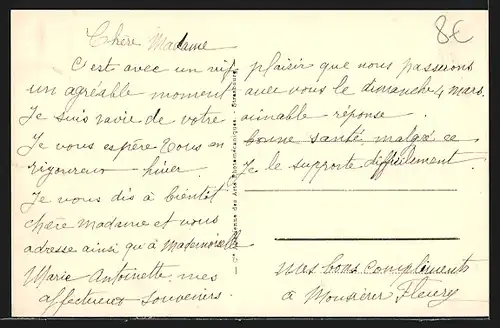 8€
Chère Madame
C'est avec un vif plaisir que nous passerons
un agréable moment avec vous le dimanche 4 mars.
Je suis ravie de votre aimable réponse.
Je vous espère Vous en bonne santé, malgré ce
rigoureux hiver. Je le supporte difficilement.
Je vous dis à bientôt
chère Madame et vous
adresse ainsi qu'à Mademoiselle
Marie Antoinette, mes
affectueux souvenirs.
mes bons compliments
à Monsieur Fleury
Cie des Arts Photomécaniques - Strasbourg